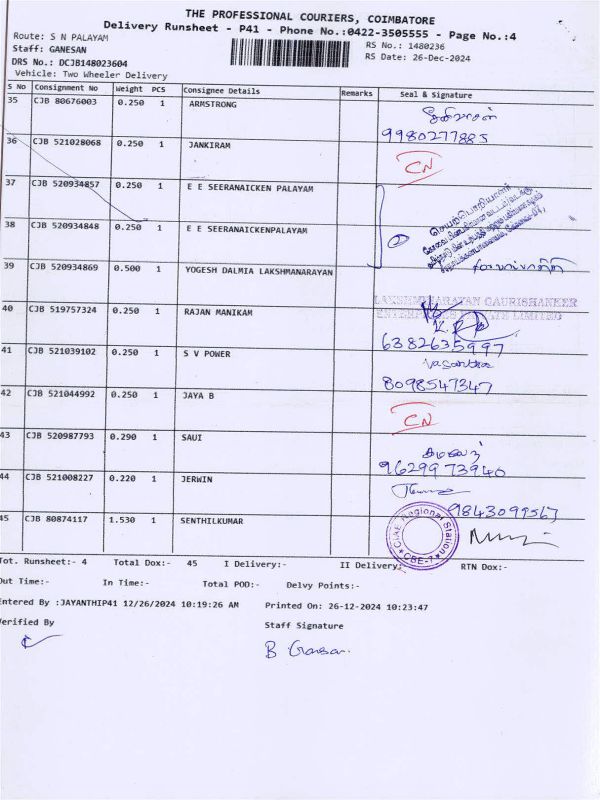 THE PROFESSIONAL COURIERS, COIMBATORE
Delivery Runsheet - P41 - Phone No.:0422-3505555 - Page No.:4
Route: S N PALAYAM
RS No.: 1480236
Staff: GANESAN
RS Date: 26-Dec-2024
DRS No.: DCJB148023604
Vehicle: Two Wheeler Delivery
S No Consignment No Weight PCS Consignee Details Remarks Seal & Signature
35 CJB 80676003 0.250 1 ARMSTRONG
9980277885
36 CJB 521028068 0.250 1 JANKIRAM
CN
37 CJB 520934857 0.250 1 E E SEERANAICKEN PALAYAM
38 CJB 520934848 0.250 1 E E SEERANAICKENPALAYAM
39 CJB 520934869 0.500 1 YOGESH DALMIA LAKSHMANARAYAN
LAKSHMINARAYAN GAURISHANKER
ENTERPRISES PRIVATE LIMITED
40 CJB 519757324 0.250 1 RAJAN MANIKAM
6382635997
41 CJB 521039102 0.250 1 S V POWER
Vasantha
8098547347
42 CJB 521044992 0.250 1 JAYA B
CN
43 CJB 520987793 0.290 1 SAUI
9629973940
44 CJB 521008227 0.220 1 JERWIN
9843099567
45 CJB 80874117 1.530 1 SENTHILKUMAR
CIAE Regional Station
CBE-7
Tot. Runsheet:- 4 Total Dox:- 45 I Delivery:- II Delivery:- RTN Dox:-
Out Time:- In Time:- Total POD:- Delvy Points:-
Entered By :JAYANTHIP41 12/26/2024 10:19:26 AM Printed On: 26-12-2024 10:23:47
Verified By Staff Signature